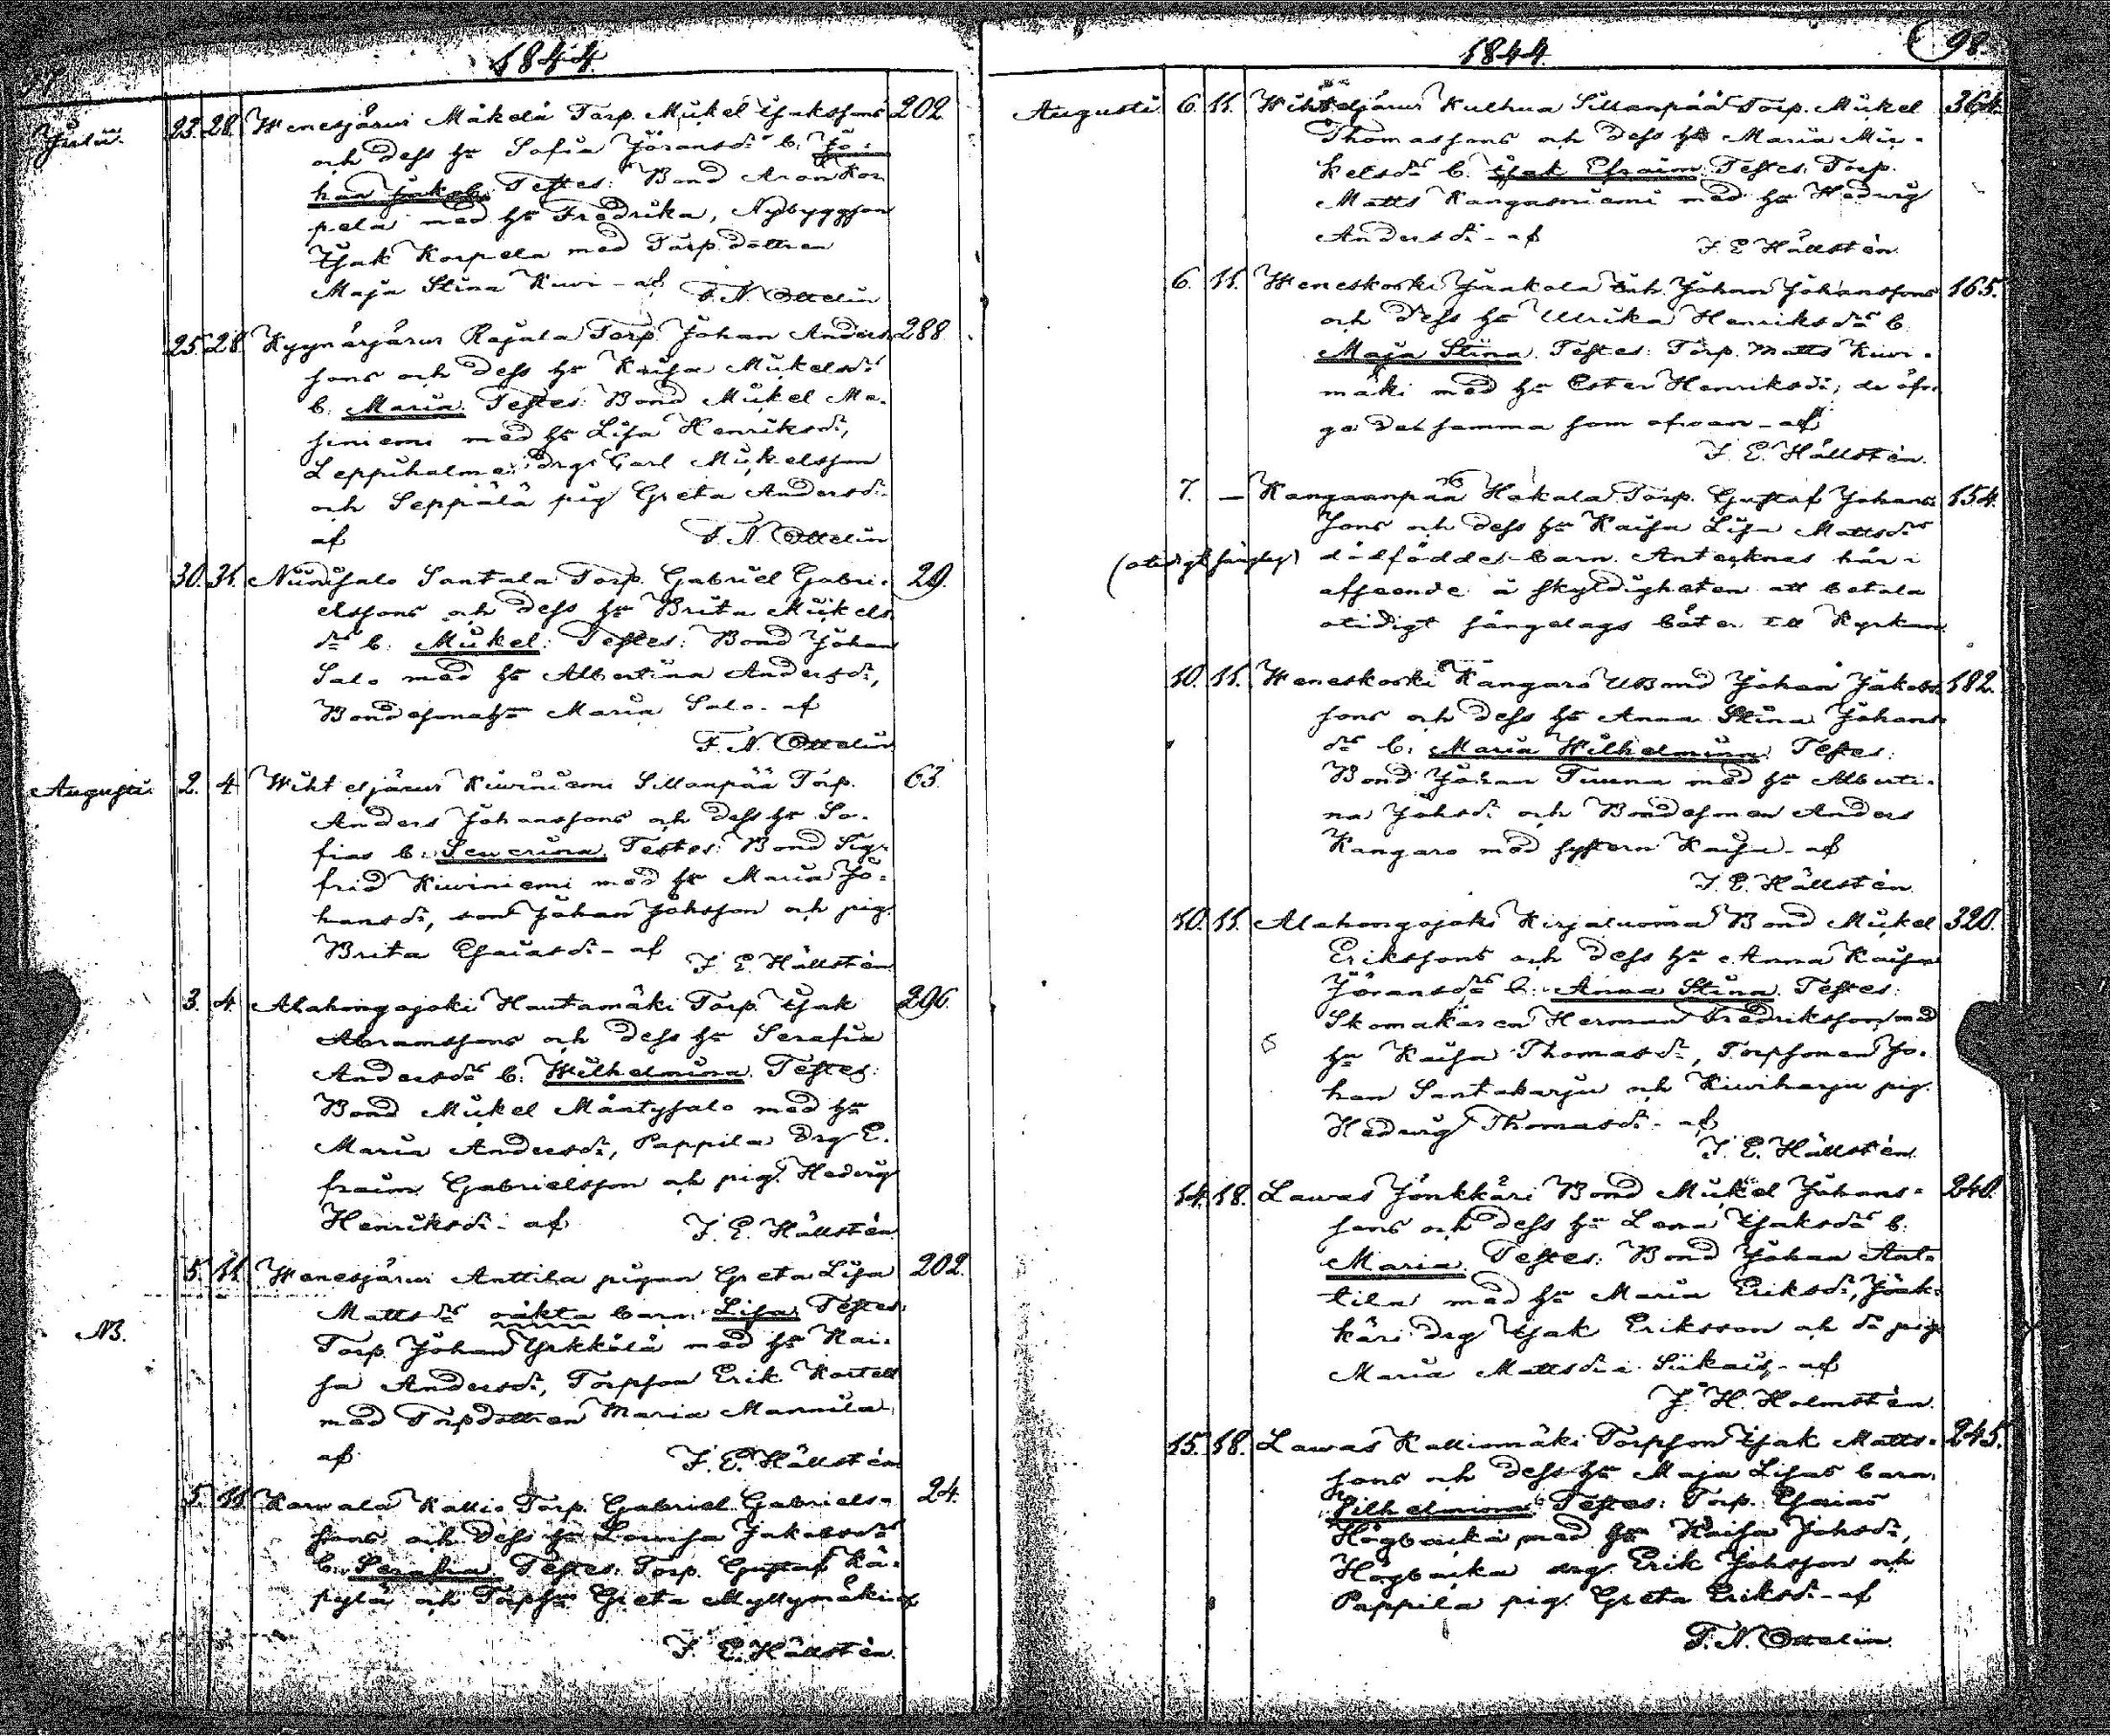 1844
97
Julii. 23. 28. Wenesjärvi Mäkelä Torp. Mickel Isakssons 202
och dess hu Sofia Jöransdrs b. Jo-
han Jakob. Testes: Bond Aron Kor
pela med hu Fredrika, Nybyggson
Isak Korpela med Torp. dottren
Maja Stina Kivi - af F. N. Ottelin
25. 28. Kyynärjärvi Rajala Torp. Johan Anders- 288
sons och dess hu Kaisa Mickelsdrs
b. Maria. Testes: Bond Mickel Me-
siniemi med hu Lisa Henriksdr,
Leppihalme drg Carl Mickelsson
och Seppälä pig Greta Andersdr-
af F. N. Ottelin
30. 31. Niinisalo Santala Torp. Gabriel Gabri- 29.
elssons och dess hu Brita Mickels
drs b. Mickel. Testes: Bond Johan
Salo med hu Albertina Andersdr,
Bondesonahu Maria Salo - af
F. N. Ottelin
Augusti. 2. 4 Wihtesjärvi Kiviniemi Sillanpää Torp. 63.
Anders Johanssons och dess hu So-
fias b. Severina. Testes: Bond Sig-
frid Kiviniemi med hu Maria Jo-
hansdr, son Johan Johsson och pig.
Brita Esaiasdr - af F. E. Hällstén
3. 4. Alahongojoki Hautamäki Torp. Isak 296.
Abramssons och dess hu Serafia
Andersdrs b. Wilhelmina. Testes:
Bond Mickel Mäntysalo med hu
Maria Andersdr, Pappila drg E-
fraim Gabrielsson och pig. Hedvig
Henriksdr - af F. E. Hällstén
5. 11. Wenesjärvi Anttila pigan Greta Lisa 202.
NB. Mattsdrs oäkta barn Lisa Testes:
Torp. Johan Yrkkölä med hu Kai-
sa Andersdr, Torpson Erik Kartell
med Torpdottren Maria Mannila
af F. E. Hällstén
5. 11. Karvala Kallio Torp. Gabriel Gabriels- 24.
sons och dess hu Lovisa Jakobsdrs
b. Serafia Testes: Torp. Gustaf Kä-
pylä och Torphu Greta Myllymäki af
F. E. Hällstén
1844. 98.
Augusti 6. 11. Wihteljärvi Kulhua Sillanpää Torp. Mickel 364.
Thomassons och dess hu Maria Mic-
kelsdrs b. Isak Efraim. Testes: Torp.
Matts Kangasniemi med hu Hedvig
Andersdr - af F. E. Hällstén
6. 11. Weneskoski Jaakola Inh. Johan Johanssons 165.
och dess hu Ulrika Henriksdrs b.
Maja Stina. Testes: Torp. Matts Kivi-
mäki med hu Ester Henriksdr, de öfri-
ga det samma som ofvan - af
F. E. Hällstén.
7. — Kangaanpää Hakala Torp. Gustaf Johans- 154.
sons och dess hu Kaisa Lisa Mattsdrs
(otidigt sänglag) dödföddes barn. Antecknas här i
afseende å skyldigheten att betala
otidigt sängelags böter till Kyrkan
10. 11. Weneskoski Kangars Bond Johan Jakobs- 182.
sons och dess hu Anna Stina Johans-
drs b. Maria Wilhelmina. Testes:
Bond Johan Tuuna med hu Alberti-
na Johsdr och Bondesonen Anders
Kangars med systern Kaisa - af
F. E. Hällstén.
10. 11. Alahongojoki Kirjaluoma Bond Mickel 320.
Erikssons och dess hu Anna Kaisa
Jöransdrs b. Anna Stina. Testes:
Skomakaren Herman Fredriksson med
hu Kaisa Thomasdr, Torpsonen Jo-
han Santaharju och Kiviharju pig.
Hedvig Thomasdr - af
F. E. Hällstén.
14. 18. Lawas Jönkkäri Bond Mickel Johans- 240.
sons och dess hu Lena Isaksdrs b.
Maria. Testes: Bond Johan Ant-
tila med hu Maria Eriksdr, Jönk-
käri drg Isak Eriksson och do pig
Maria Mattsdr i Siikais - af
J. H. Holmstén.
15. 18. Lawas Kalliomäki Torpson Isak Matts- 245.
sons och dess hu Maja Lisas barn
Wilhelmina Testes: Torp. Esaias
Högbacka med hu Kaisa Johsdr,
Högbacka drg. Erik Johsson och
Pappila pig. Greta Eriksdr - af
F. N. Ottelin.